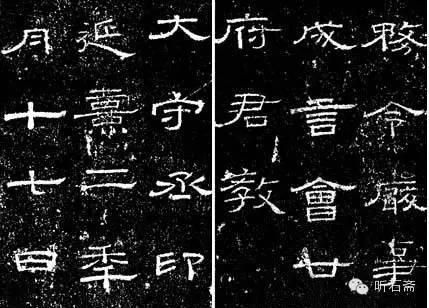 務令嚴畢
成言會廿
府君教
大守丞印
延熹二年
月十七日
听石斋